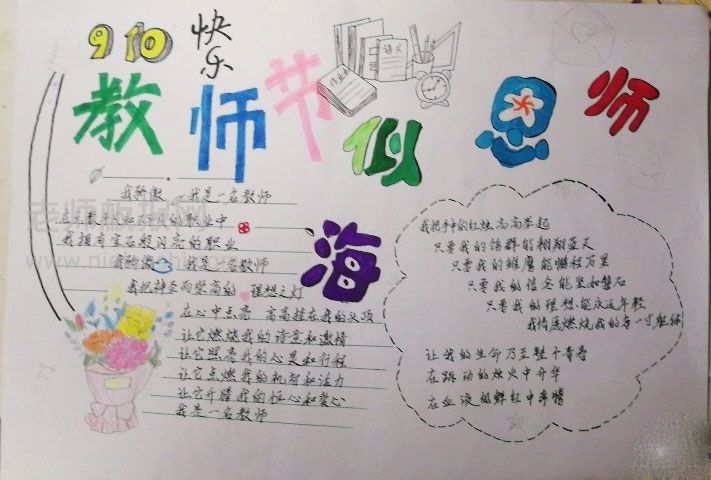 9 10
快乐
教师节
师恩似海
语文
作业本
我骄傲 我是一名教师
的职业中
我拥有宝石般闪亮的职业
我骄傲 我是一名教师
我把神圣而崇高的 理想之灯
在心中点亮 高高挂在我的头顶
让它燃烧我的诗意和激情
让它照亮我的心灵和行程
让它点燃我的机智和活力
让它升腾我的恒心和爱心
我是一名教师
我把手中的红烛高高举起
只要我的鸽群能翱翔蓝天
只要我的雄鹰能鹏程万里
只要我的信念能坚如磐石
只要我的理想能永远年轻
我情愿燃烧我的每一寸躯体
让我的生命乃至整个青春
在跳动的烛火中升华
在血液般鲜红中奔腾
老师板报网